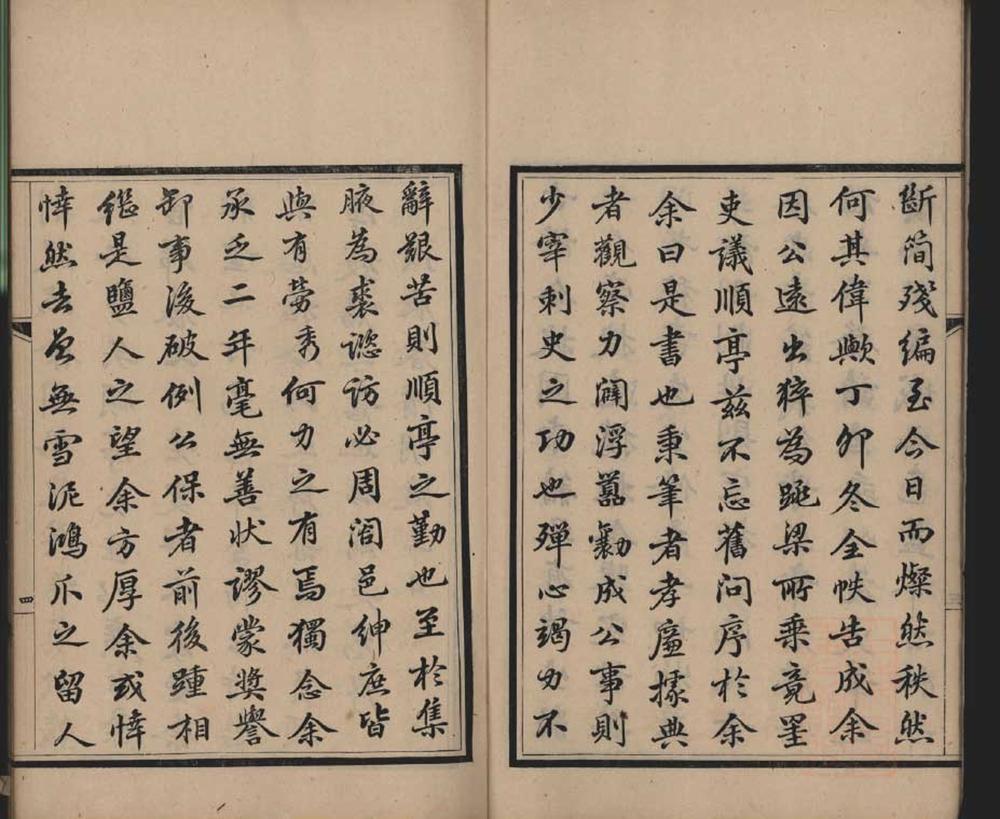 斷簡殘編至今日而燦然秩然
何其偉歟丁卯冬全帙告成余
因公遠出猝為跪梁所乘竟罣
吏議順亭茲不忘舊問序於余
余曰是書也秉筆者孝廉據典
者觀察力闢浮囂勷成公事則
少宰刺史之功也殫心竭力不
辭艱苦則順亭之勤也至於集
腋為裘諮訪必周閤邑紳庶皆
與有勞秀何力之有焉獨念余
承乏二年毫無善狀謬蒙獎譽
卸事後破例公保者前後踵相
繼是鹽人之望余方厚余或悻
悻然去曾無雪泥鴻爪之留人
四